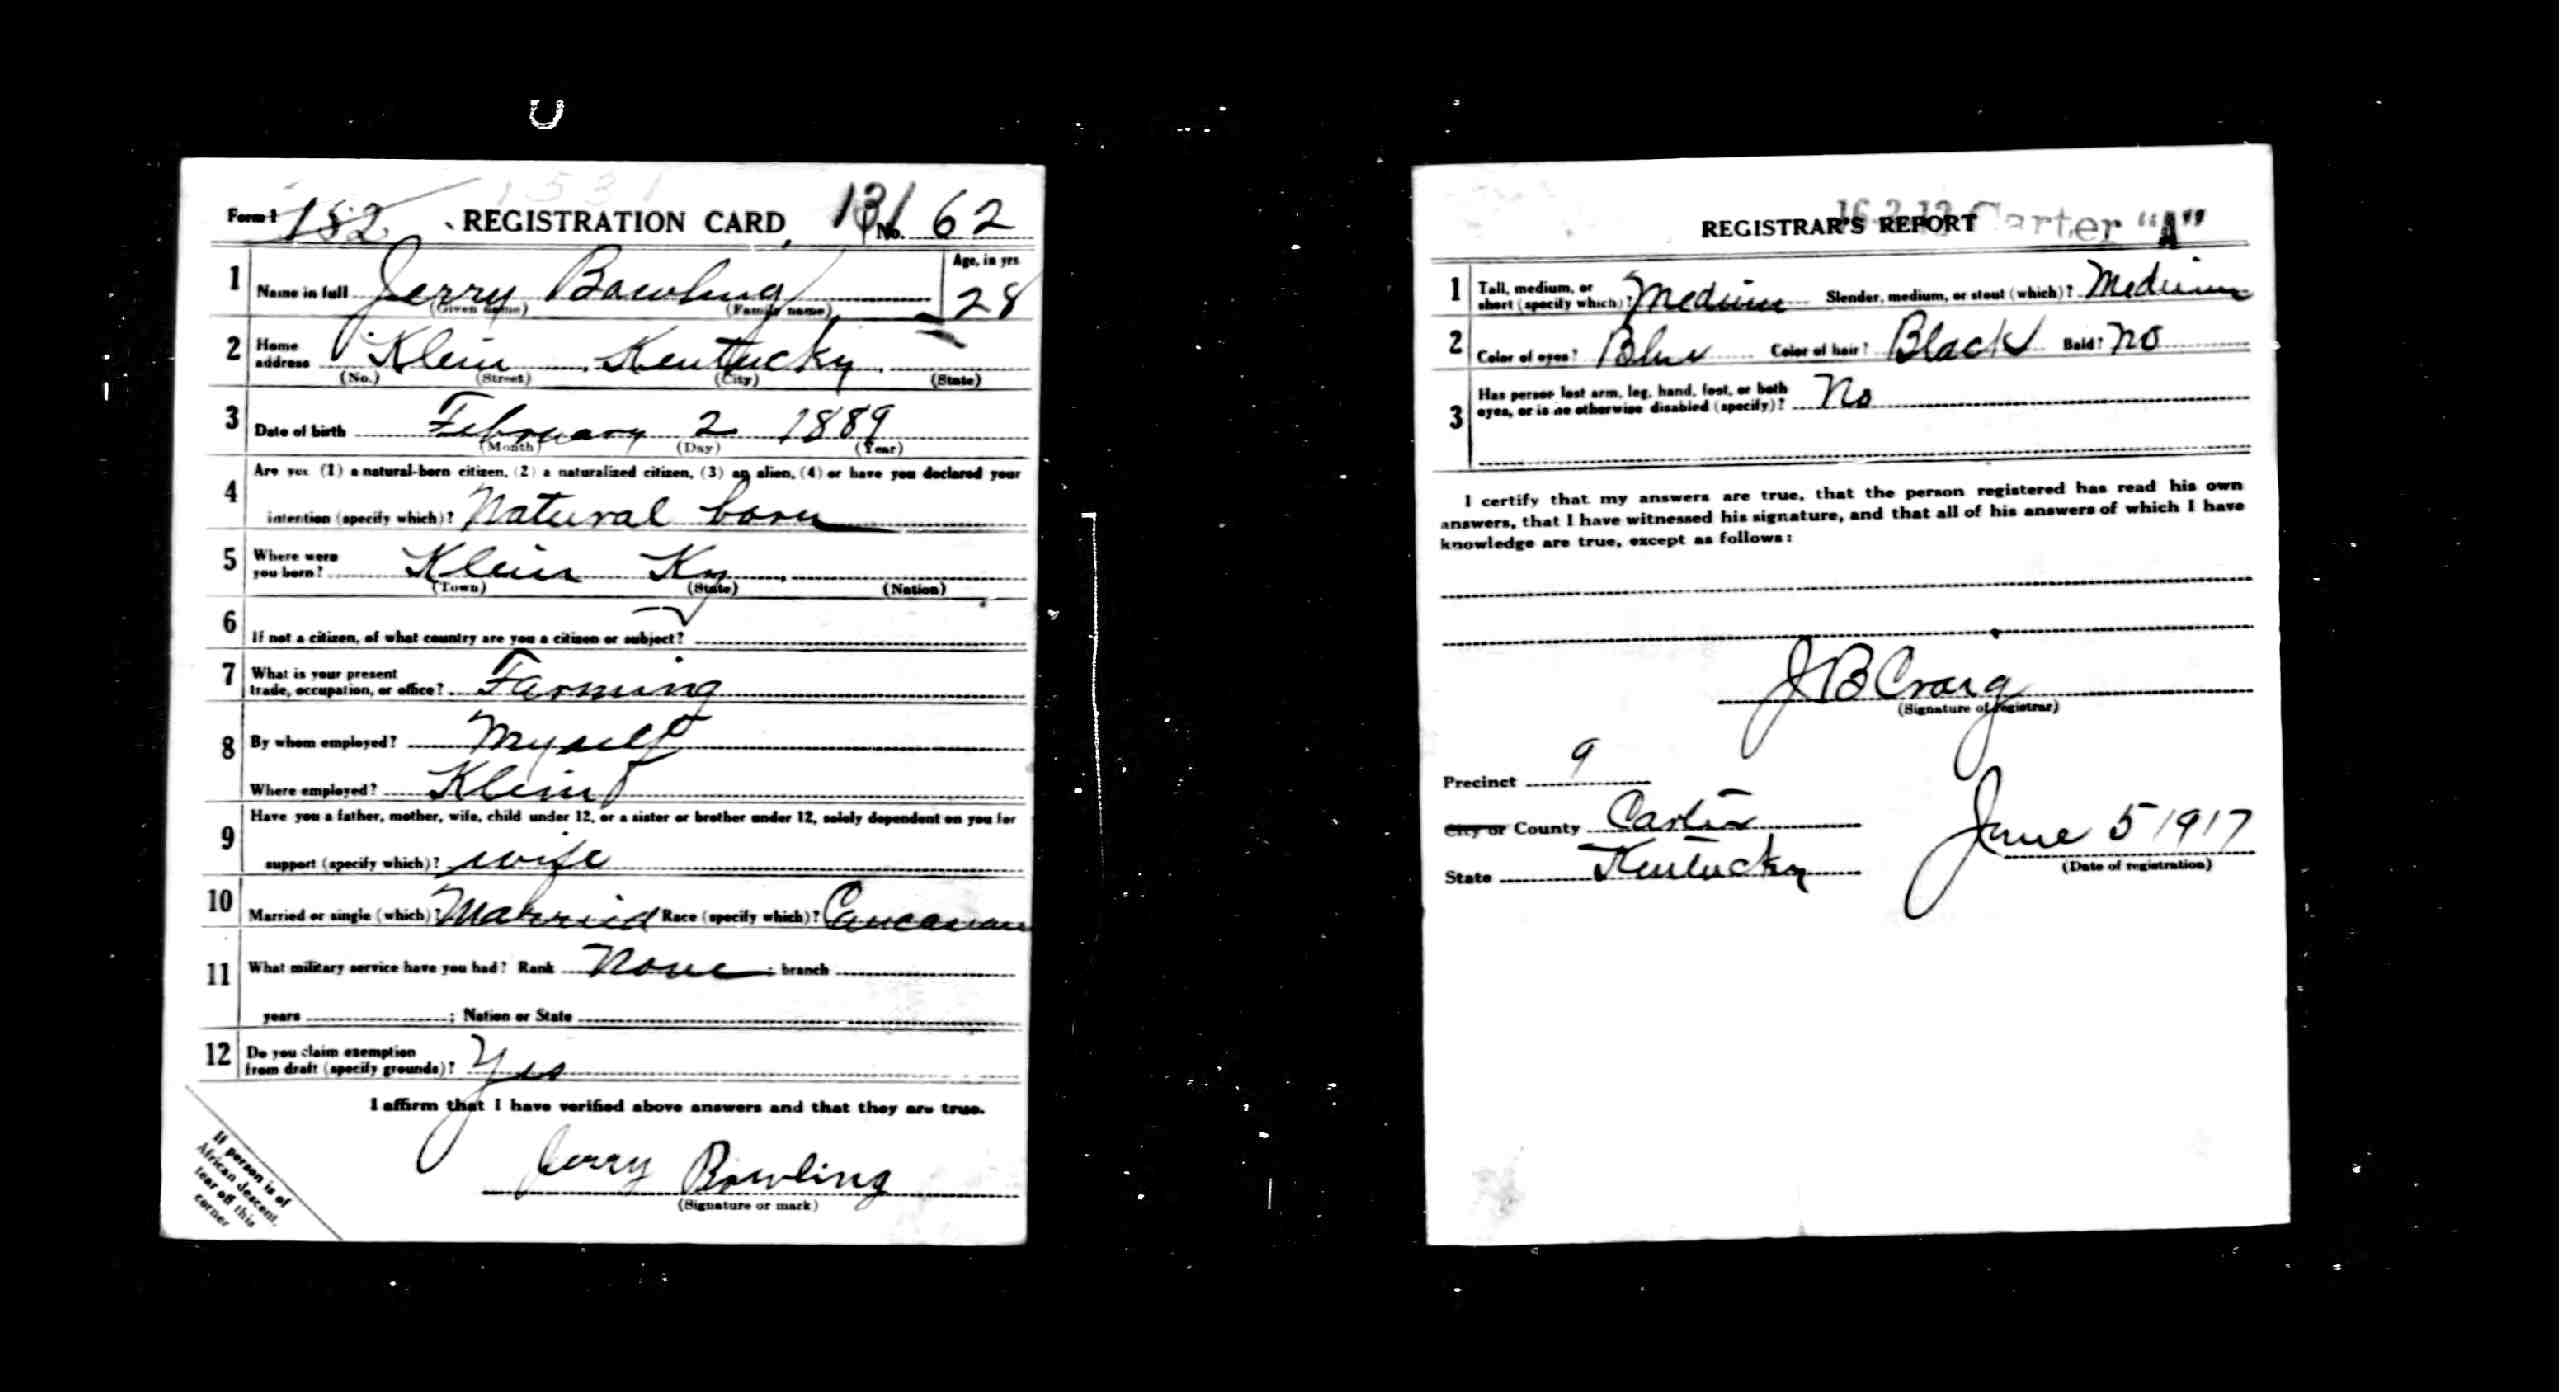 Form 1 182 REGISTRATION CARD 131 No. 62
1 Name in full Jerry Bowling Age, in yrs
(Given name) (Family name) 28
2 Home address Klein Kentucky
(No.) (Street) (City) (State)
3 Date of birth February 2 1889
(Month) (Day) (Year)
4 Are you (1) a natural-born citizen, (2) a naturalized citizen, (3) an alien, (4) or have you declared your
intention (specify which)? Natural born
5 Where were you born? Klein Ky
(Town) (State) (Nation)
6 If not a citizen, of what country are you a citizen or subject?
7 What is your present
trade, occupation, or office? Farming
8 By whom employed? Myself
Where employed? Klein
9 Have you a father, mother, wife, child under 12, or a sister or brother under 12, solely dependent on you for
support (specify which)? wife
10 Married or single (which)? Married Race (specify which)? Caucasian
11 What military service have you had? Rank None ; branch
years ; Nation or State
12 Do you claim exemption
from draft (specify grounds)? Yes
I affirm that I have verified above answers and that they are true.
Jerry Bowling
(Signature or mark)
If person is of
African descent,
tear off this
corner
16-2-12 Carter "A"
REGISTRAR'S REPORT
1 Tall, medium, or
short (specify which)? Medium Slender, medium, or stout (which)? Medium
2 Color of eyes? Blue Color of hair? Black Bald? No
3 Has person lost arm, leg, hand, foot, or both
eyes, or is he otherwise disabled (specify)? No
I certify that my answers are true, that the person registered has read his own
answers, that I have witnessed his signature, and that all of his answers of which I have
knowledge are true, except as follows:
J B Craig
(Signature of registrar)
Precinct 9
City or County Carter
State Kentucky
June 5 1917
(Date of registration)